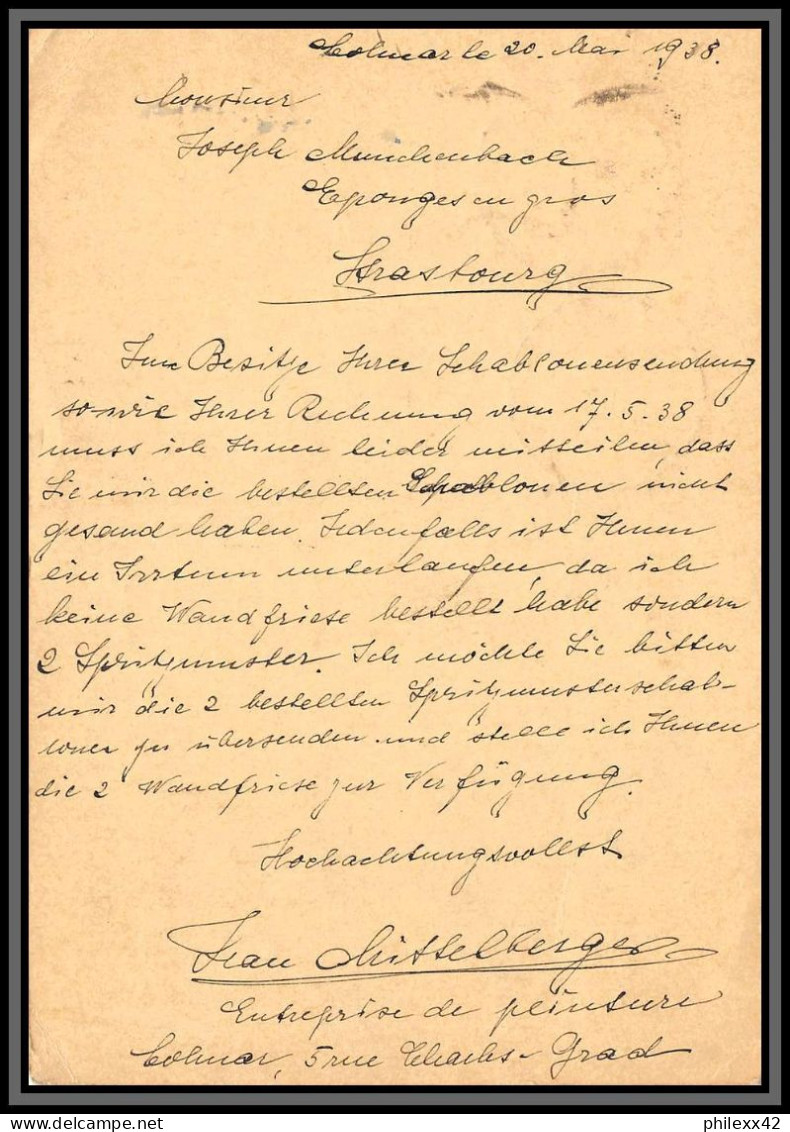 Colmar le 20. Mai 1938.
Monsieur
Joseph Munchenbach
Eponges en gros
Strasbourg
Im Besitze Ihrer Schablonensendung
so-wie Ihrer Rechnung vom 17.5.38
muss ich Ihnen leider mitteilen, dass
Sie mir die bestellten Schablonen nicht
gesand haben. Jedenfalls ist Ihnen
ein Irrtum unterlaufen, da ich
keine Wandfriese bestellt habe sondern
2 Spritzmuster. Ich möchte Sie bitten
mir die 2 bestellten Spritzmusterschab-
lonen zu übersenden und stelle ich Ihnen
die 2 Wandfriese zur Verfügung.
Hochachtungsvollst
Jean Mittelberger
Entreprise de peinture
Colmar, 5 rue Charles-Grad
www.delcampe.net
philexx42